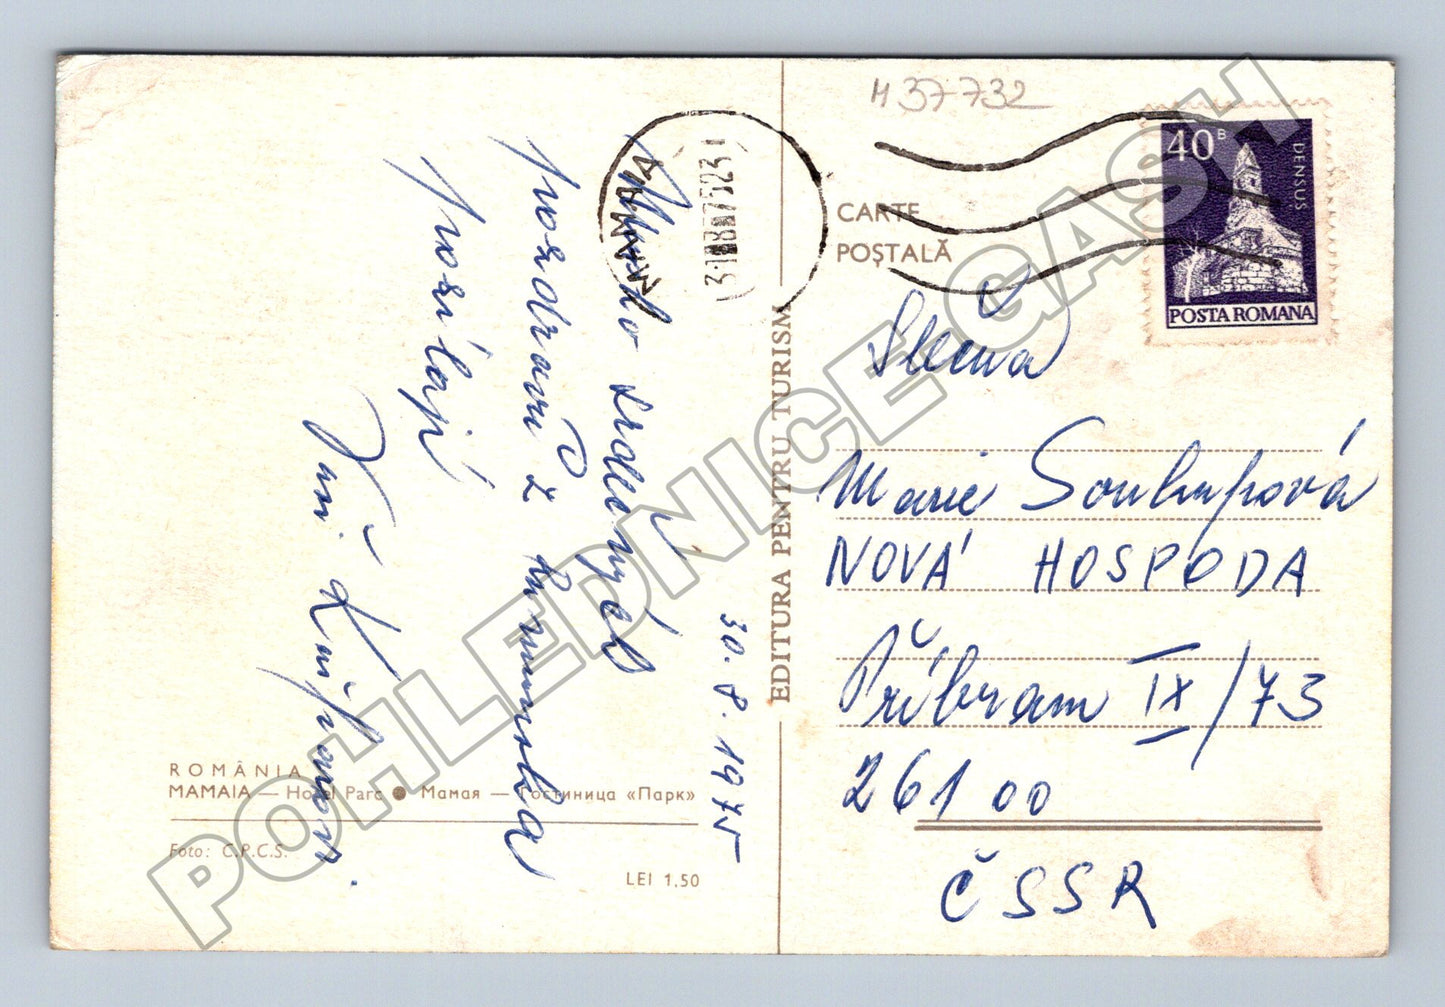 Mnoho srdečných
pozdravů z Rumunska
posílají
30. 8. 1975
MAMAIA
31 8 75 23
ROMÂNIA
MAMAIA — Hotel Parc ● Мамая — Гостиница «Парк»
Foto: C.P.C.S.
LEI 1,50
EDITURA PENTRU TURISM
M 37732
CARTE
POȘTALĂ
40 B
DENSUS
POSTA ROMANA
Slečna
Marie Soukupová
NOVÁ HOSPODA
Příbram IX/73
261 00
ČSSR
POHLEDNICE-CASH